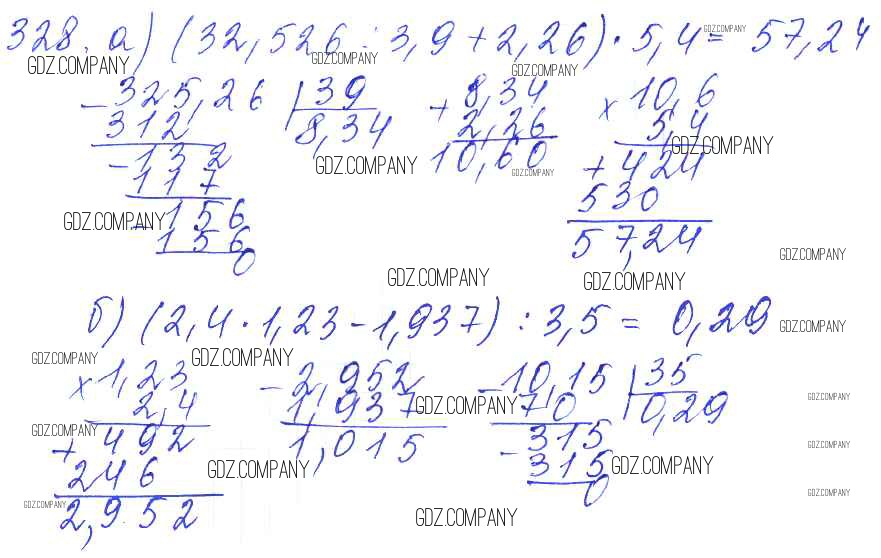 328. а) (32,526 : 3,9 + 2,26) · 5,4 = 57,24
GDZ.COMPANY GDZ.COMPANY GDZ.COMPANY GDZ.COMPANY
- 325,26 | 39 + 8,34 × 10,6
312 8,34 2,26 5,4
GDZ.COMPANY
- 132 10,60 + 424
GDZ.COMPANY GDZ.COMPANY
117 530
- 156 57,24
GDZ.COMPANY
156
0
GDZ.COMPANY
GDZ.COMPANY GDZ.COMPANY
б) (2,4 · 1,23 - 1,937) : 3,5 = 0,29
GDZ.COMPANY
GDZ.COMPANY GDZ.COMPANY
× 1,23 - 2,952 - 10,15 | 35
2,4 1,937 70 0,29
GDZ.COMPANY GDZ.COMPANY
+ 492 1,015 - 315
GDZ.COMPANY GDZ.COMPANY
246 315
GDZ.COMPANY GDZ.COMPANY
2,952 0
GDZ.COMPANY GDZ.COMPANY
GDZ.COMPANY